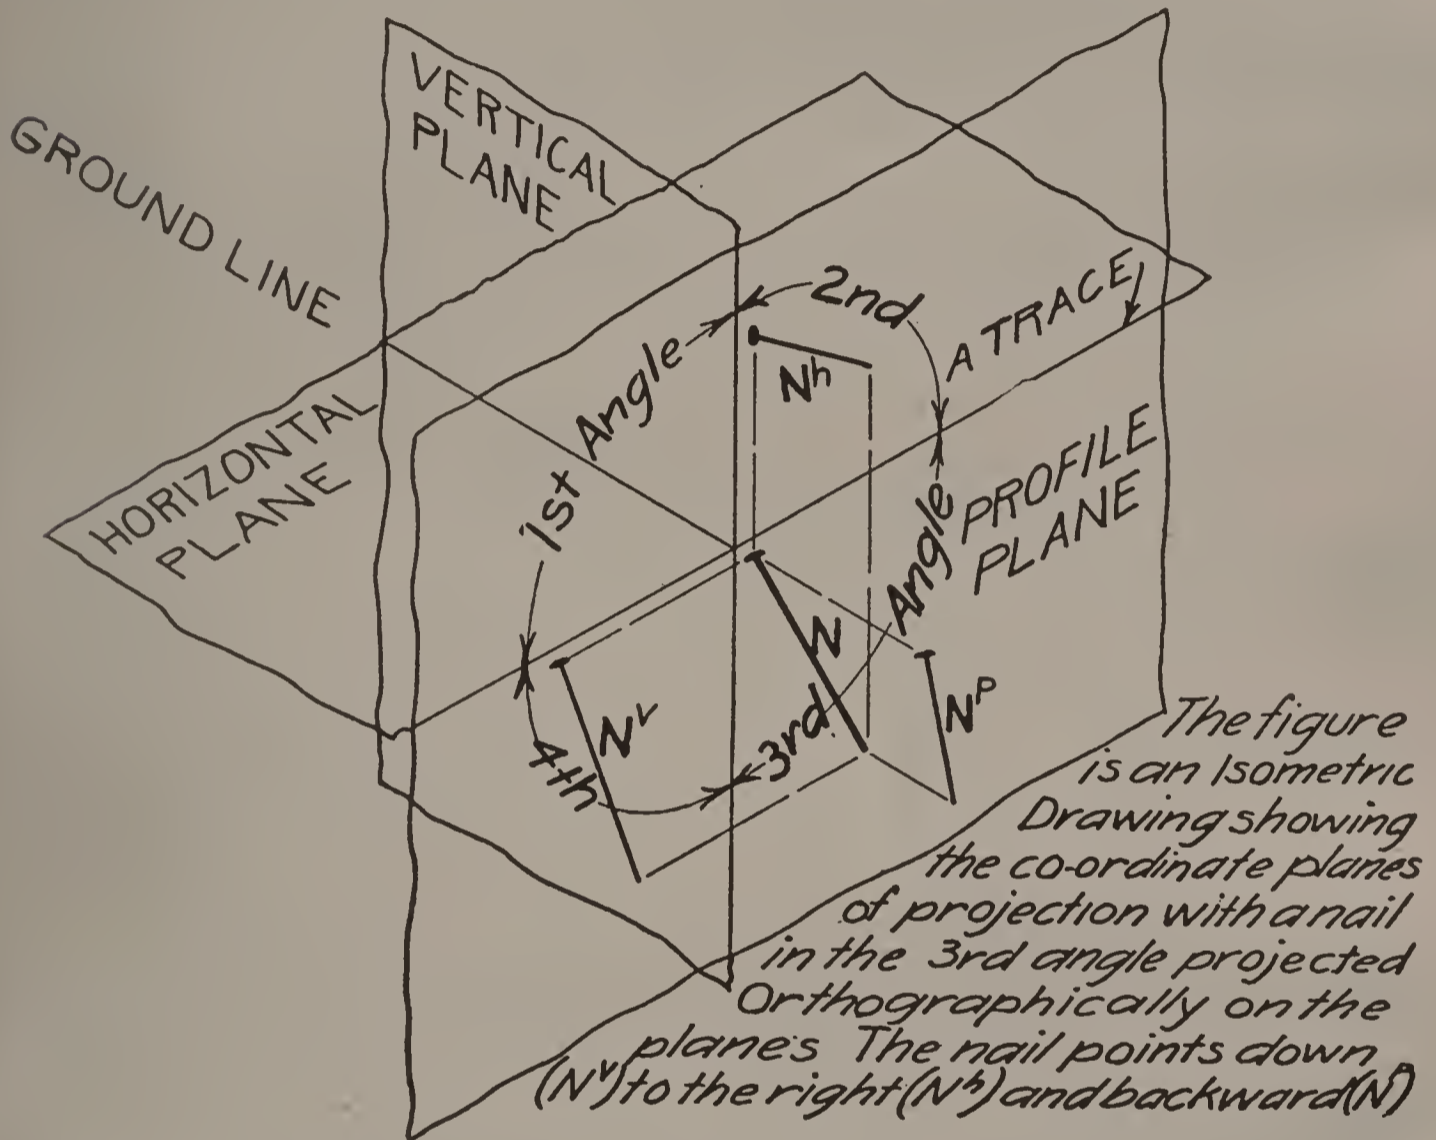 VERTICAL
PLANE
GROUND LINE
2nd
A TRACE
Nʰ
1st Angle
HORIZONTAL
PLANE
PROFILE
PLANE
Angle
N
Nᵛ
Nᴾ
3rd
4th
The figure
is an Isometric
Drawing showing
the co-ordinate planes
of projection with a nail
in the 3rd angle projected
Orthographically on the
planes The nail points down
(Nᵛ) to the right (Nʰ) and backward (Nᴾ)